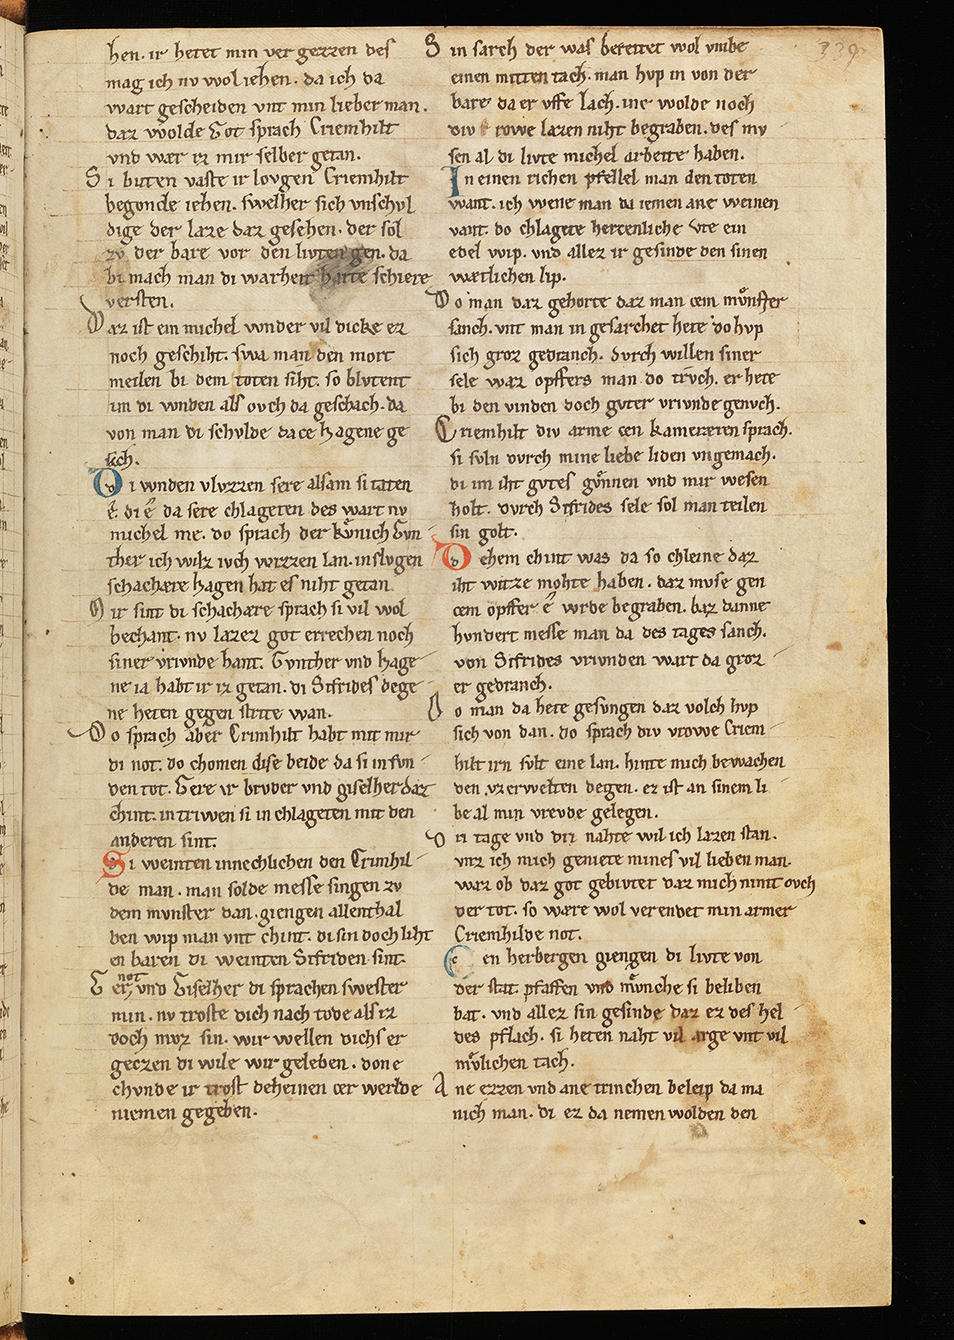 339
hen. ir hetet min vergezzen des
mag ich nv wol iehen. da ich da
wart gescheiden vnt min lieber man.
daz wolde Got sprach Criemhilt
vnd wær iz mir selber getan.
Si buten vaste ir lovgen Criemhilt
begonde iehen. swelher sich vnschvl
dige der laze daz gesehen. der sol
zv der bare vor den livten gen. da
bi mach man di warheit harte schiere
versten.
Daz ist ein michel wnder vil dicke ez
noch geschiht. swa man den mort
meilen bi dem toten siht. so blvtent
im di wnden als ovch da geschach. da
von man di schvlde da ce Hagene ge
sach.
Di wnden vlvzzen sere alsam si taten
ê. di ê da sere chlageten des wart nv
michel me. do sprach der kv̊nich Gvn
ther ich wilz ivch wizzen lan. in slvgen
schachære Hagen hat es niht getan.
Mir sint di schachære sprach si vil wol
bechant. nv lazez got errechen noch
siner vrivnde hant. Gvnther vnd Hage
ne ia habt ir iz getan. di Sifrides dege
ne heten gegen strite wan.
Do sprach aber Crimhilt habt mit mir
di not. do chomen dise beide da si in fvn
den tot. Gere ir brvder vnd giselher daz
chint. in triwen si in chlageten mit den
anderen sint.
Si weinten innechlichen den Crimhil
de man. man solde messe singen zv
dem mvnster dan. giengen allenthal
ben wip man vnt chint. di sin doch liht
en baren di weinten Sifriden sint.
Gernot vnd Giselher di sprachen swester
min. nv troste dich nach tode als iz
doch mvz sin. wir wellen dichs er
geczen di wile wir geleben. done
chvnde ir trost deheinen cer werlde
niemen gegeben.
Sin sarch der was bereitet wol vmbe
einen mitten tach. man hvp in von der
bare da er vffe lach. ine wolde noch
div frowe lazen niht begraben. des mv
sen al di livte michel arbeite haben.
In einen richen pfellel man den toten
want. ich wene man da iemen ane weinen
vant. do chlagete hercenliche Vte ein
edel wip. vnd allez ir gesinde den sinen
wætlichen lip.
Do man daz gehorte daz man cem mv̊nster
sanch. vnt man in gesarchet hete do hvp
sich groz gedranch. dvrch willen siner
sele waz opffers man do trv̊ch. er hete
bi den vinden doch gvter vrivnde genvch.
Criemhilt div arme cen kameræren sprach.
si svln dvrch mine liebe liden vngemach.
di im iht gvtes gv̊nnen vnd mir wesen
holt. dvrch Sifrides sele sol man teilen
sin golt.
Dehein chint was da so chleine daz
iht witze mohte haben. daz mvse gen
cem opffer ê wrde begraben. baz danne
hvndert messe man da des tages sanch.
von Sifrides vrivnden wart da groz
er gedranch.
Do man da hete gesvngen daz volch hvp
sich von dan. do sprach div vrowe Criem
hilt irn svlt eine lan. hinte mich bewachen
den vz erwelten degen. ez ist an sinem li
be al min vrevde gelegen.
Dri tage vnd dri nahte wil ich lazen stan.
vnz ich mich geniete mines vil lieben man.
waz ob daz got gebivtet daz mich nimt ovch
der tot. so wære wol verendet min armer
Criemhilde not.
Cen herbergen giengen di livte von
der stat. pfaffen vnd mv̊nche si beliben
bat. vnd allez sin gesinde daz ez des hel
des pflach. si heten naht vil arge vnt vil
mv̊lichen tach.
Ane ezzen vnd ane trinchen beleip da ma
nich man. di ez da nemen wolden den